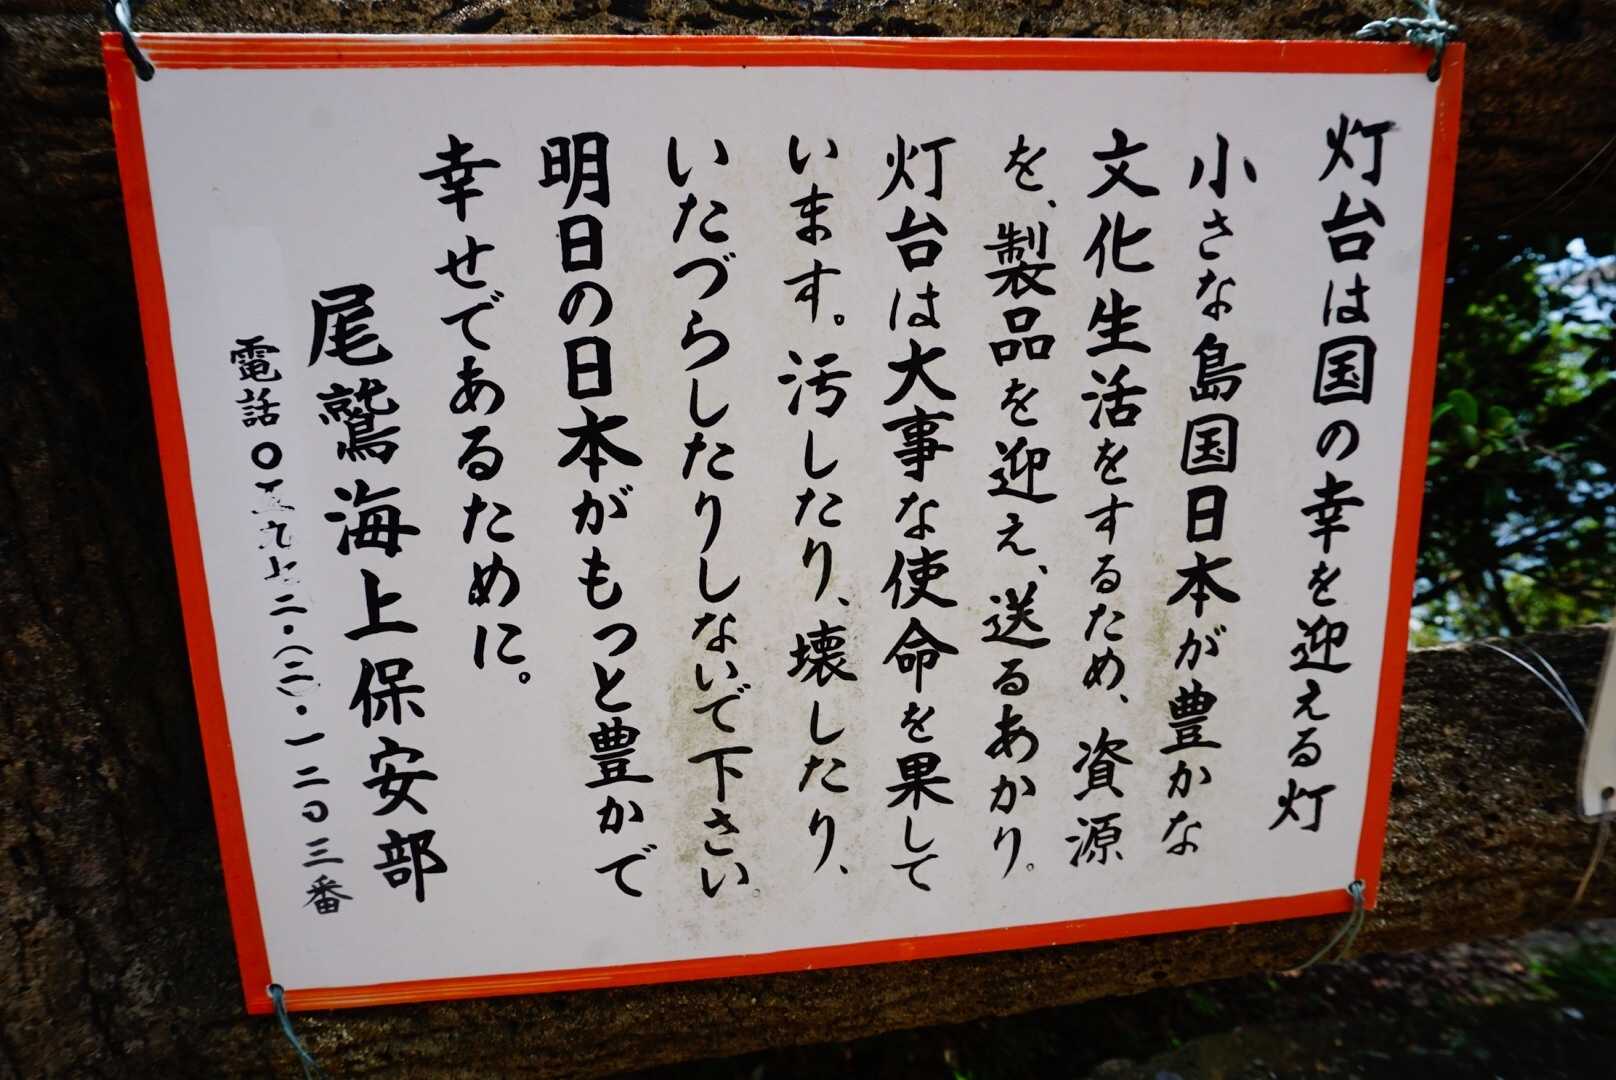 灯台は国の幸を迎える灯
小さな島国日本が豊かな
文化生活をするため、資源
を、製品を迎え、送るあかり。
灯台は大事な使命を果して
います。汚したり、壊したり、
いたづらしたりしないで下さい。
明日の日本がもっと豊かで
幸せであるために。
尾鷲海上保安部
電話〇五九七二・(二)・一二〇三番